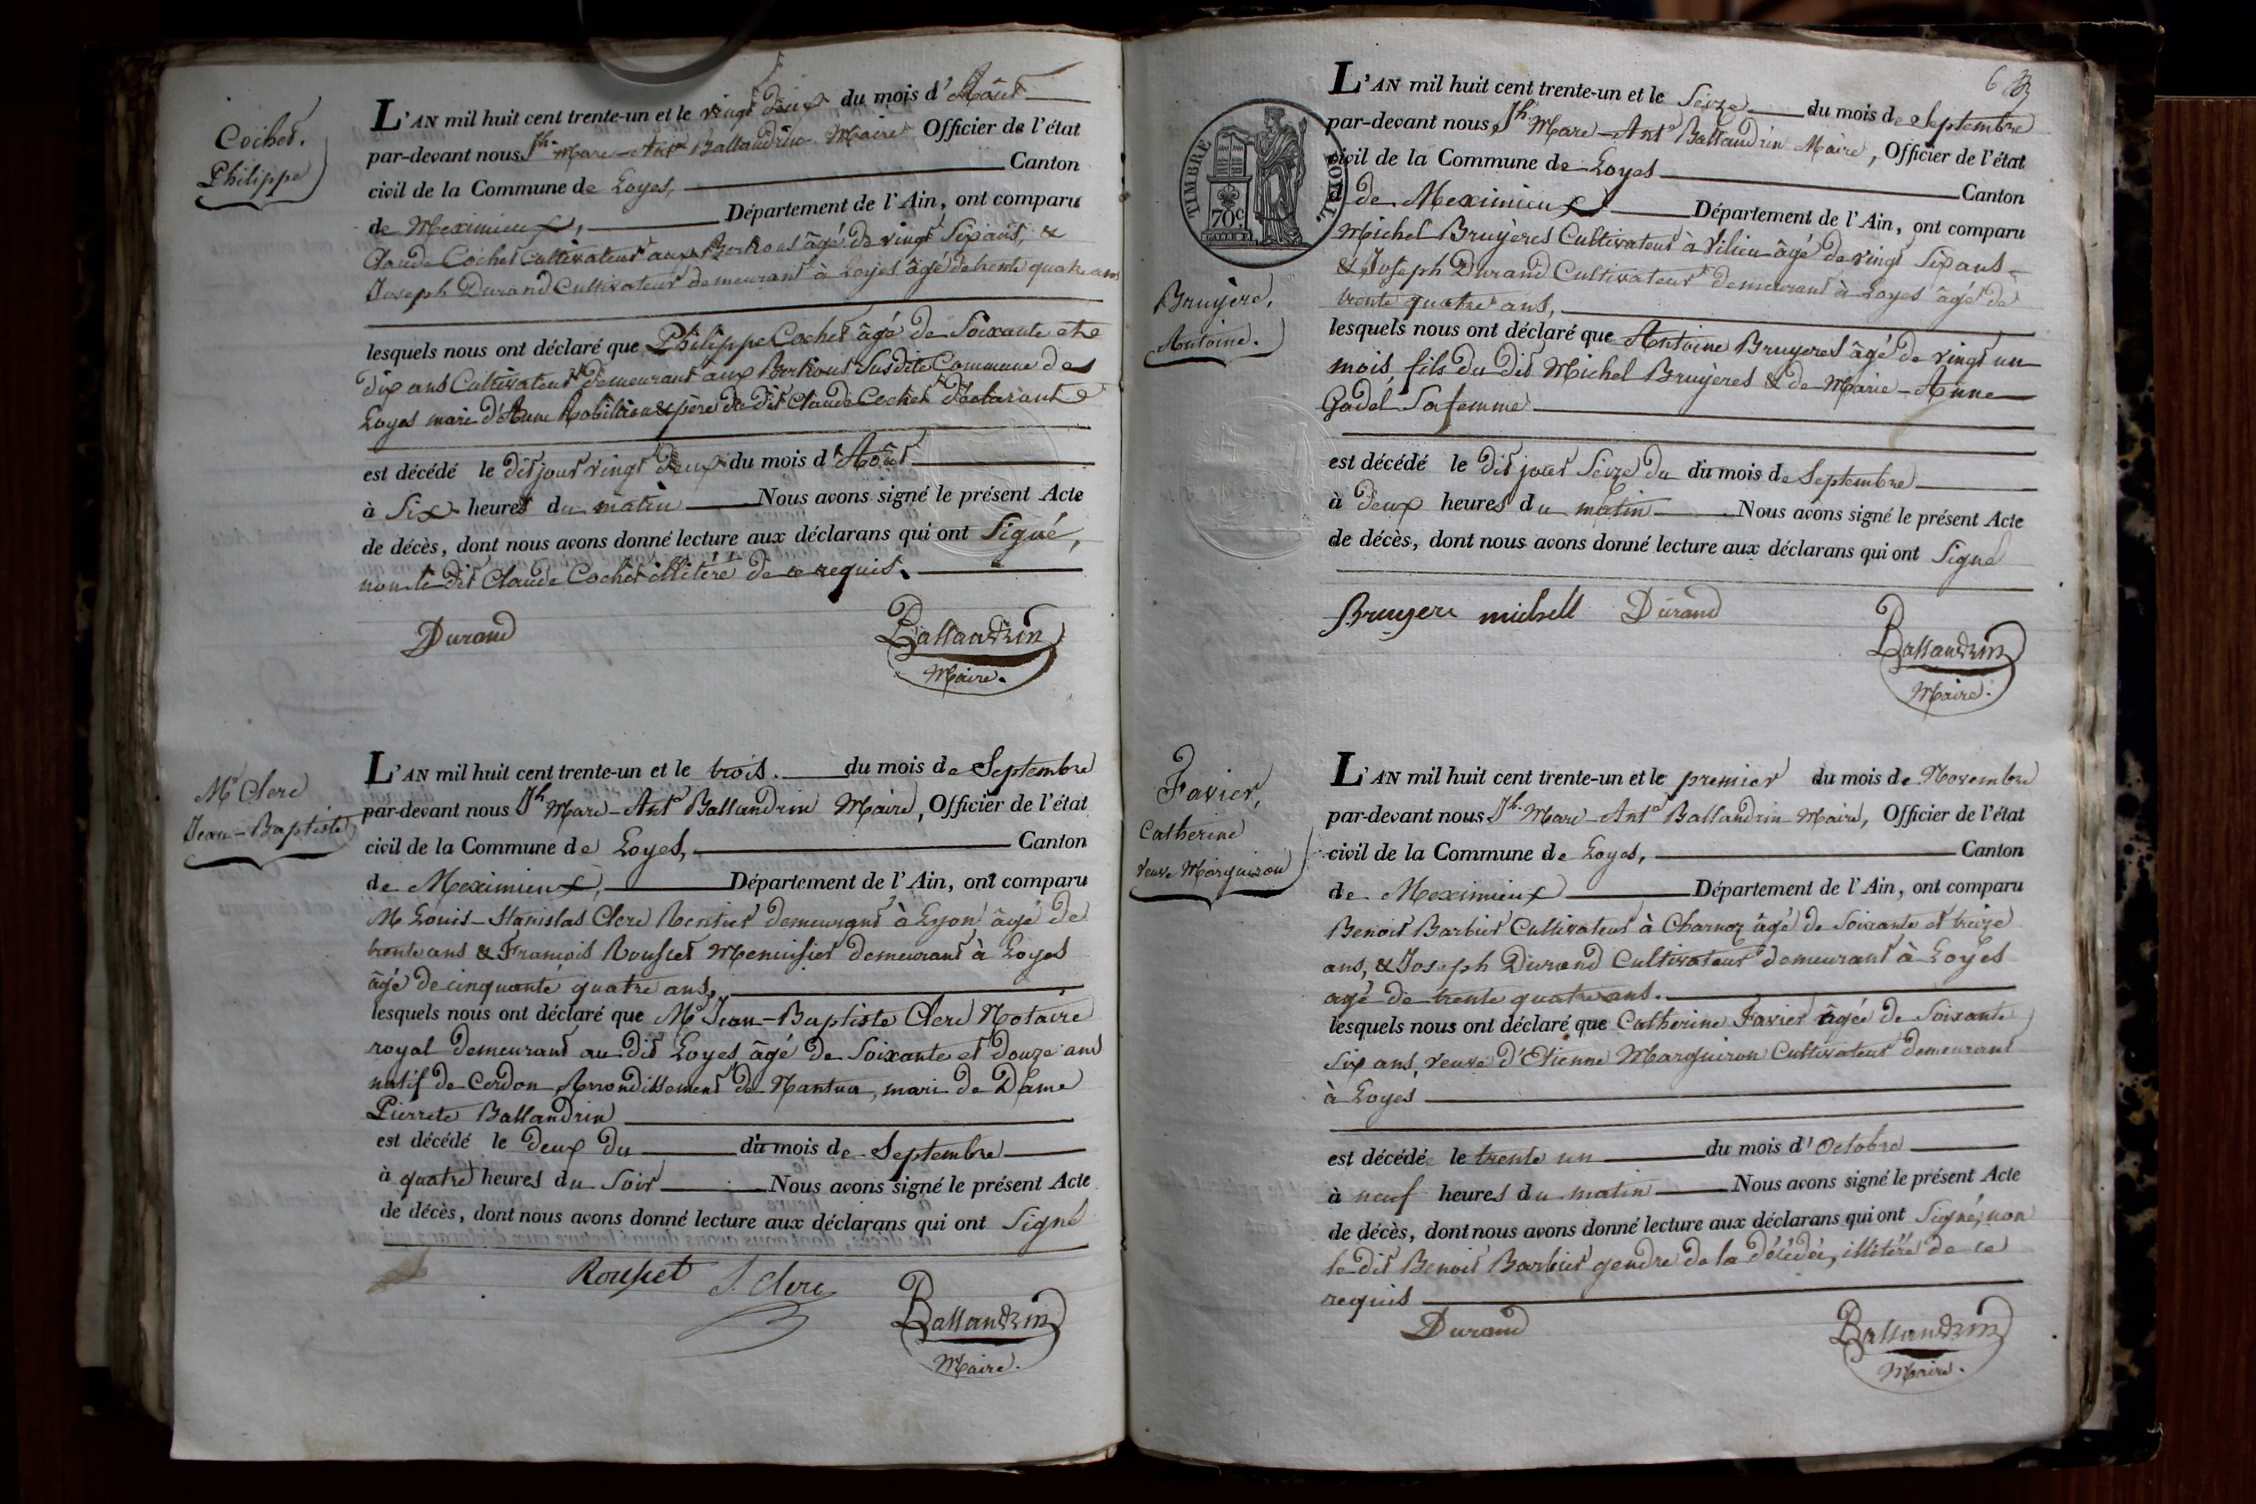 Cochet.
Philippe
L'AN mil huit cent trente-un et le vingt deux du mois d'Août
par-devant nous Jh. Marc-Ant.e Ballandrin Maire Officier de l'état
civil de la Commune de Loyes, Canton
de Meximieux, Département de l'Ain, ont comparu
Claude Cochet Cultivateur aux âgé de vingt six ans, &
Joseph Durand Cultivateur demeurant à Loyes âgé de trente quatre ans
lesquels nous ont déclaré que Philippe Cochet âgé de Soixante et
dix ans Cultivateur demeurant aux Susdite Commune de
Loyes mari d'Anne & père du dit Claude Cochet déclarant
est décédé le dit jour vingt deux du mois d'Août
à Six heures du matin Nous avons signé le présent Acte
de décès, dont nous avons donné lecture aux déclarans qui ont Signé,
non le dit Claude Cochet illitéré de ce requis.
Durand
Ballandrin
Maire.
Me Clerc
Jean-Baptiste
L'AN mil huit cent trente-un et le trois. du mois de Septembre
par-devant nous Jh Marc-Ant.e Ballandrin Maire, Officier de l'état
civil de la Commune de Loyes, Canton
de Meximieux, Département de l'Ain, ont comparu
M. Louis-Stanislas Clerc Rentier demeurant à Lyon âgé de
trente ans & François Rousset Menuisier demeurant à Loyes
âgé de cinquante quatre ans,
lesquels nous ont déclaré que Me Jean-Baptiste Clerc Notaire
royal demeurant au dit Loyes âgé de Soixante et douze ans
natif de Cerdon Arrondissement de Nantua, mari de Dame
Pierrete Ballandrin
est décédé le deux du du mois de Septembre
à quatre heures du Soir Nous avons signé le présent Acte
de décès, dont nous avons donné lecture aux déclarans qui ont Signé
Rousset S. Clerc
Ballandrin
Maire.
6
TIMBRE ROYAL
70c
Bruyère,
Antoine.
L'AN mil huit cent trente-un et le Seize du mois de Septembre
par-devant nous Jh Marc-Ant.e Ballandrin Maire, Officier de l'état
civil de la Commune de Loyes Canton
de Meximieux Département de l'Ain, ont comparu
Michel Bruyères Cultivateur à Vilieu âgé de vingt Six ans
& Joseph Durand Cultivateur demeurant à Loyes âgé de
trente quatre ans,
lesquels nous ont déclaré que Antoine Bruyeres âgé de vingt un
mois fils du dit Michel Bruyères & de Marie-Anne
Gadel Sa femme
est décédé le dit jour Seize du du mois de Septembre
à deux heures du matin Nous avons signé le présent Acte
de décès, dont nous avons donné lecture aux déclarans qui ont Signé
Bruyere michell Durand
Ballandrin
Maire.
Favier,
Catherine
veuve Marquiron
L'AN mil huit cent trente-un et le premier du mois de Novembre
par-devant nous Jh. Marc-Ant.e Ballandrin Maire, Officier de l'état
civil de la Commune de Loyes, Canton
de Meximieux Département de l'Ain, ont comparu
Benoit Barbier Cultivateur à Charnoz âgé de Soixante et treize
ans, & Joseph Durand Cultivateur demeurant à Loyes
agé de trente quatre ans.
lesquels nous ont déclaré que Catherine Favier âgée de Soixante
Six ans, veuve d'Etienne Marquiron Cultivateur demeurant
à Loyes
est décédé le trente un du mois d'Octobre
à neuf heures du matin Nous avons signé le présent Acte
de décès, dont nous avons donné lecture aux déclarans qui ont Signé, non
le dit Benoit Barbier gendre de la décédée, illitéré de ce
requis
Durand
Ballandrin
Maire.